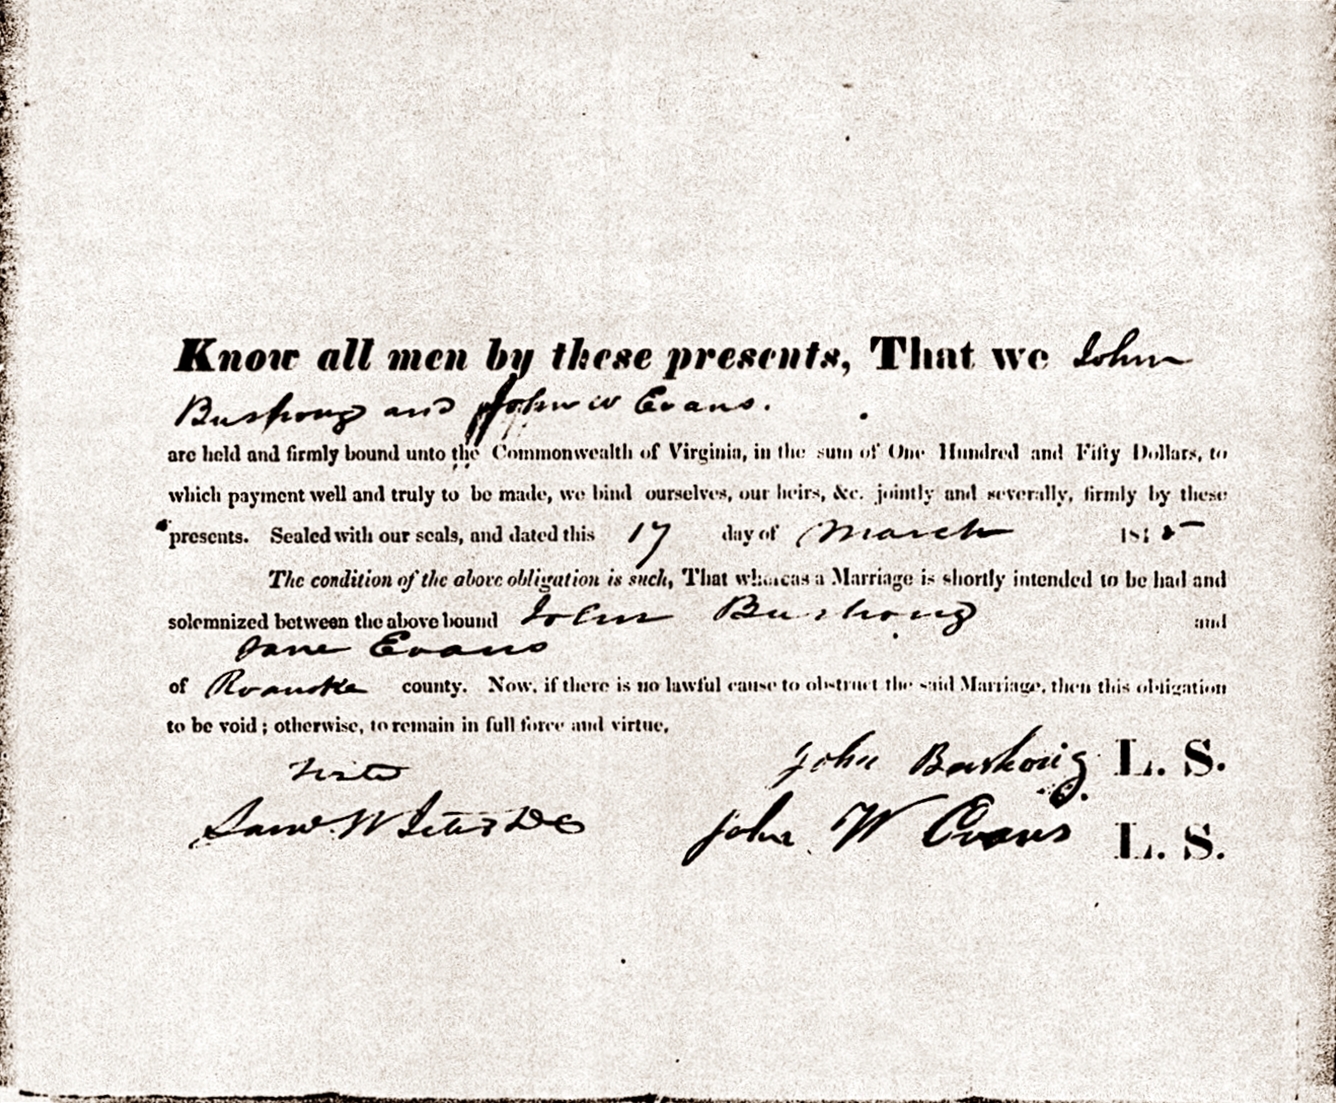 Know all men by these presents, That we John
Bushong and John W Evans.
are held and firmly bound unto the Commonwealth of Virginia, in the sum of One Hundred and Fifty Dollars, to
which payment well and truly to be made, we bind ourselves, our heirs, &c. jointly and severally, firmly by these
presents. Sealed with our seals, and dated this 17 day of March
The condition of the above obligation is such, That whereas a Marriage is shortly intended to be had and
solemnized between the above bound John Bushong and
Jane Evans
of Roanoke county. Now, if there is no lawful cause to obstruct the said Marriage, then this obligation
to be void; otherwise, to remain in full force and virtue.
Teste
John Bushong L. S.
John W Evans L. S.